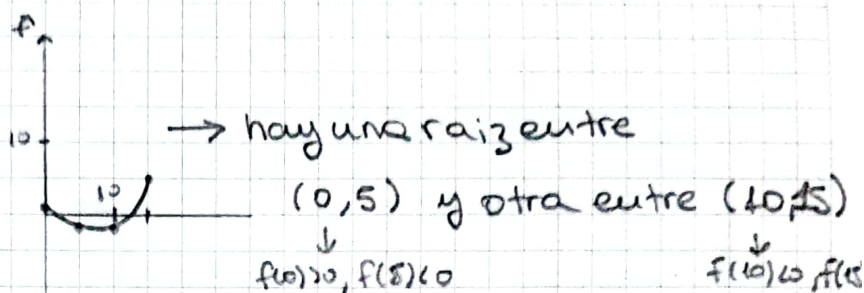 f
→ hay una raiz entre
10
10
(0,5) y otra entre (10,15)
↓ ↓
f(0)>0, f(5)<0 f(10)<0, f(15